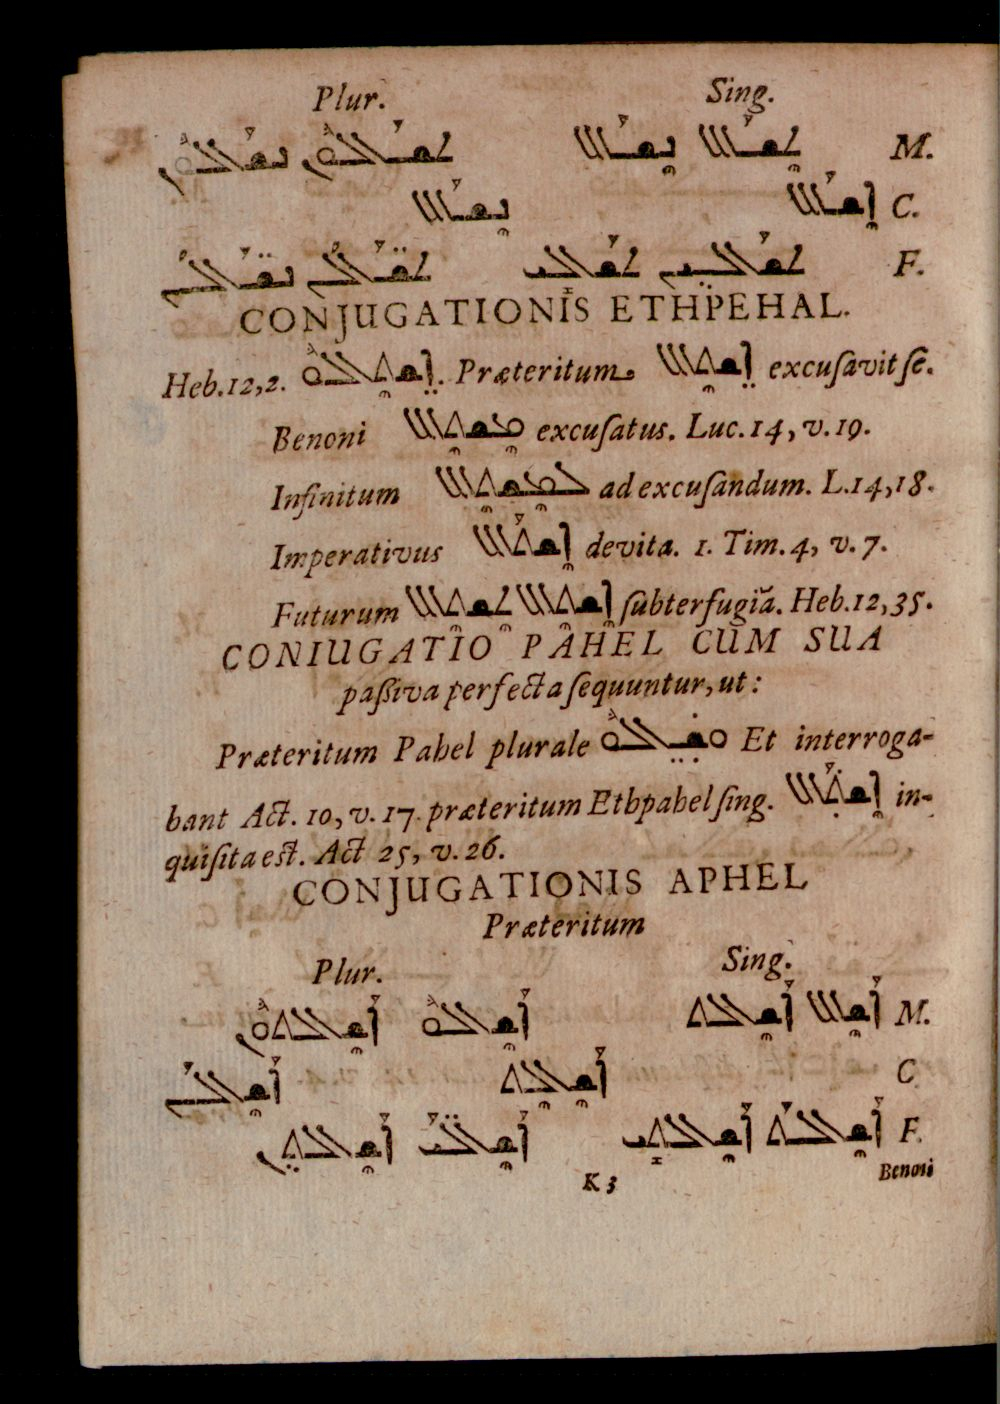 Plur. Sing.
M. ܬܫܐܠ ܢܫܐܠ ܬܫܐܠܘܢ ܢܫܐܠܘܢ
C. ܐܫܐܠ ܢܫܐܠ
F. ܬܫܐܠܝ ܬܫܐܠܝܢ ܬܫܐܠܢ ܢܫܐܠܢ
CONJUGATIONIS ETHPEHAL.
Heb.12,2. ܐܫܬܐܠܘ. Præteritum ܐܫܬܐܠ excuſavit ſe.
Benoni ܡܫܬܐܠ excuſatus. Luc. 14, v. 19.
Infinitum ܠܡܫܬܐܠ ad excuſandum. L.14,18.
Imperativus ܐܫܬܐܠ devita. 1. Tim. 4, v. 7.
Futurum ܐܫܬܐܠ ܬܫܬܐܠ ſubterfugiā. Heb.12,35.
CONIUGATIO PAHEL CUM SUA
paſſiva perfecta ſequuntur, ut:
Præteritum Pahel plurale ܘܫܐܠܘ Et interroga-
bant Act. 10, v. 17. præteritum Ethpahel ſing. ܐܫܬܐܠ in-
quiſita eſt. Act 25, v. 26.
CONJUGATIONIS APHEL
Præteritum
Plur. Sing.
M. ܐܫܐܠ ܐܫܐܠܬ ܐܫܐܠܘ ܐܫܐܠܬܘܢ
C ܐܫܐܠܬ ܐܫܐܠܢ
F. ܐܫܐܠܬ ܐܫܐܠܬܝ ܐܫܐܠܝ ܐܫܐܠܬܝܢ
K 3 Benoni